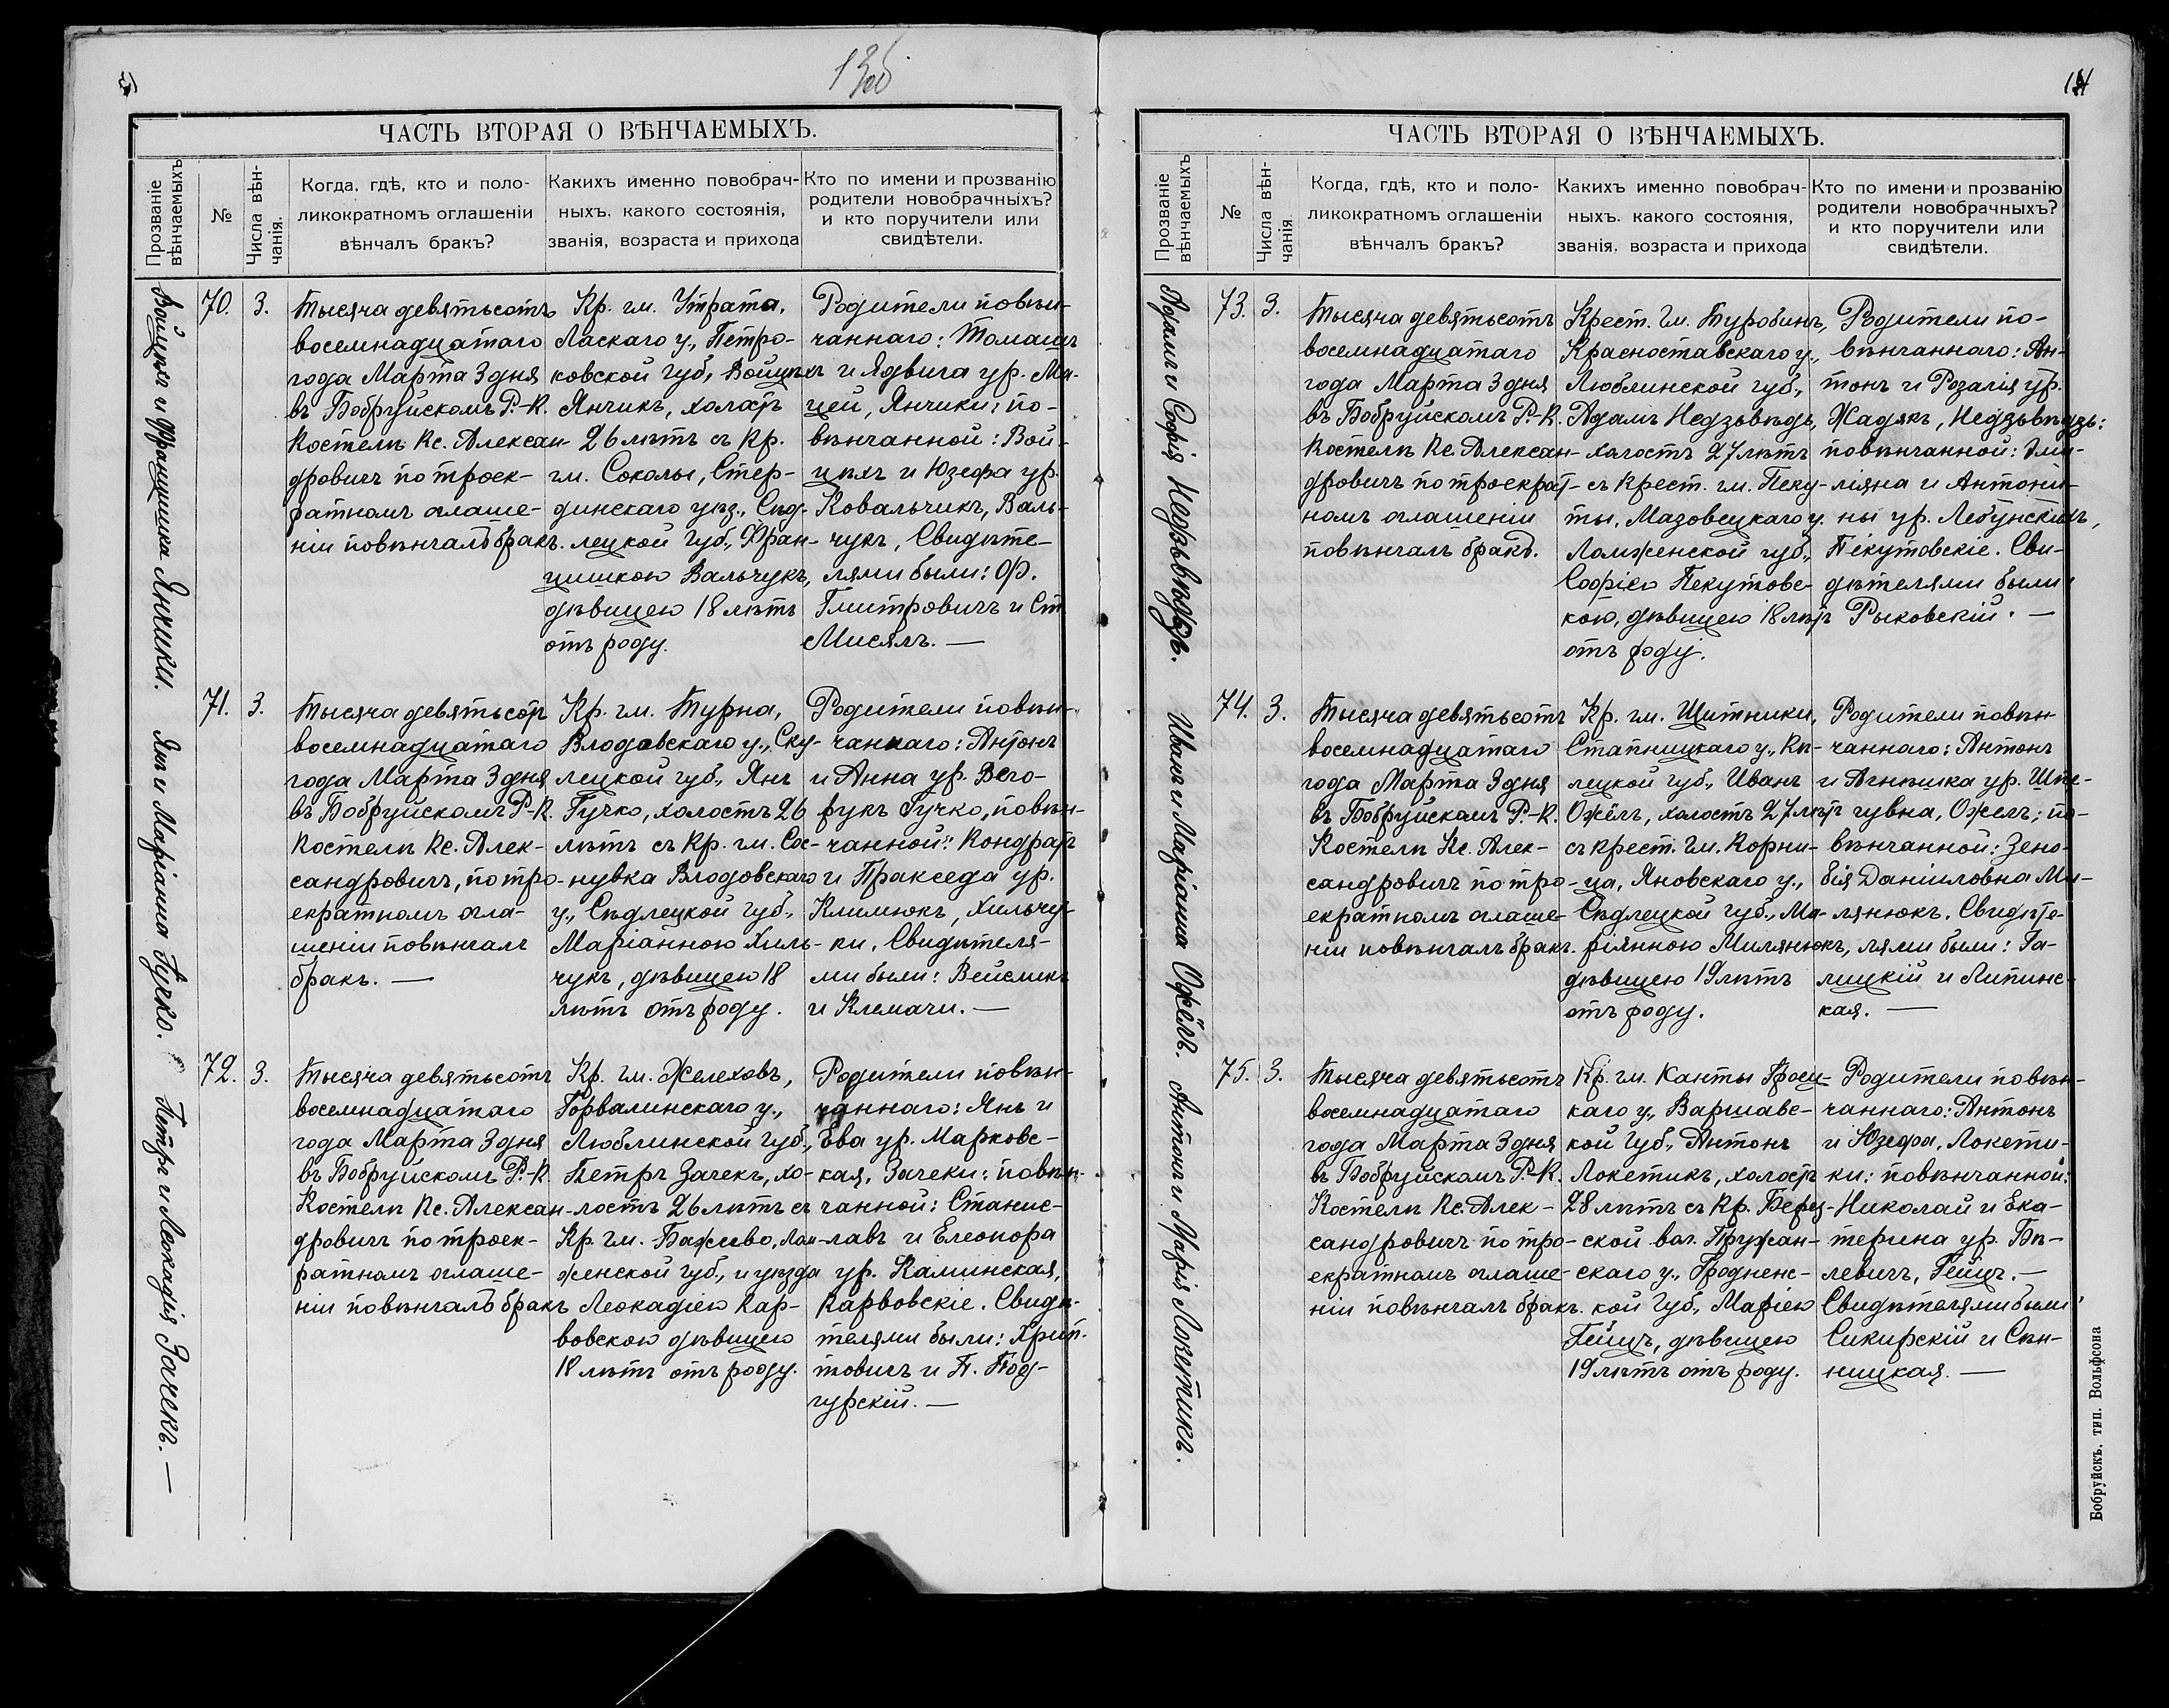 13об
ЧАСТЬ ВТОРАЯ О ВѢНЧАЕМЫХЪ.
Прозваніе вѣнчаемыхъ
№
Числа вѣн-
чанія.
Когда, гдѣ, кто и поло-
ликократномъ оглашеніи
вѣнчалъ бракъ?
Какихъ именно повобрач-
ныхъ. какого состоянія,
званія, возраста и прихода
Кто по имени и прозванію
родители новобрачныхъ?
и кто поручители или
свидѣтели.
Войцѣхъ и Францишка Янчики.
70.
3.
Тысяча девятьсотъ
восемнадцатаго
года Марта 3 дня
въ Бобруйскомъ Р.-К.
Костелѣ Кс. Алексан-
дровичъ по троек-
ратномъ оглаше-
ніи повѣнчалъ бракъ.
Кр. гм. Утрата,
Ласкаго у., Петро-
ковской губ., Войцѣхъ
Янчикъ, холостъ
26 лѣтъ съ кр.
гм. Соколы, Стер-
динскаго уѣз., Сѣд-
лецкой губ., Фран-
цишкою Вальчукъ,
дѣвицею 18 лѣтъ
отъ роду.
Родители повѣн-
чаннаго: Томашъ
и Ядвига ур. Ма-
цей, Янчики; по-
вѣнчанной: Вой-
цѣхъ и Юзефа ур.
Ковальчикъ, Валь-
чукъ, Свидѣте-
лями были: Ф.
Гмитровичъ и Ст
Мисялъ. —
Янъ и Маріанна Гучко.
71.
3.
Тысяча девятьсотъ
восемнадцатаго
года Марта 3 дня
въ Бобруйскомъ Р-К.
Костелѣ Кс. Алек-
сандровичъ, по тро-
екратномъ огла-
шеніи повѣнчалъ
бракъ. —
Кр. гм. Турна,
Влодавскаго у., Сѣд-
лецкой губ., Янъ
Гучко, холостъ 26
лѣтъ съ кр. гм. Сос-
новка Влодовскаго
у., Сѣдлецкой губ.,
Маріанною Хиль-
чукъ, дѣвицею 18
лѣтъ отъ роду.
Родители повѣн-
чаннаго: Антонъ
и Анна ур. Вего-
рукъ Гучко, повѣн-
чанной: Кондратъ
и Пракседа ур.
Климюкъ, Хильчу-
ки, Свидѣтеля-
ми были: Вейсликъ
и Клемачи. —
Петръ и Леокадія Зачекъ. —
72.
3.
Тысяча девятьсотъ
восемнадцатаго
года Марта 3 дня
въ Бобруйскомъ Р.-К
Костелѣ Кс. Алексан-
дровичъ по троек-
ратномъ оглаше-
ніи повѣнчалъ бракъ
Кр. гм. Желеховъ,
Горвалинскаго у.,
Люблинской губ.,
Петръ Зачекъ, хо-
лостъ 26 лѣтъ съ
Кр. гм. Бажево, Лом-
женской губ., и уѣзда
Леокадіею Кар-
вовскою дѣвицею
18 лѣтъ отъ роду.
Родители повѣн-
чаннаго: Янъ и
Ева ур. Марковс-
кая, Зачеки: повѣн-
чанной: Станис-
лавъ и Елеонора
ур. Каминская,
Карвовскіе. Свидѣ-
телями были: Хреп-
товичъ и П. Под-
гурскій. —
ЧАСТЬ ВТОРАЯ О ВѢНЧАЕМЫХЪ.
Прозваніе вѣнчаемыхъ
№
Числа вѣн-
чанія
Когда, гдѣ, кто и поло-
ликократномъ оглашеніи
вѣнчалъ бракъ?
Какихъ именно повобрач-
ныхъ. какого состоянія,
званія, возраста и прихода
Кто по имени и прозванію
родители новобрачныхъ?
и кто поручители или
свидѣтели.
Адамъ и Софія Недзьвѣдзь.
73.
3.
Тысяча девятьсотъ
восемнадцатаго
года Марта 3 дня
въ Бобруйскомъ Р.-К.
Костелѣ Кс. Алексан-
дровичъ по троекрат-
номъ оглашеніи
повѣнчалъ бракъ.
Крест. гм. Туробинъ,
Красноставскаго у.,
Люблинской губ.,
Адамъ Недзьвѣдь,
холостъ 27 лѣтъ
съ крест. гм. Пеку-
ты, Мазовецкаго у.
Ломженской губ.,
Софіею Пекутовс-
кою, дѣвицею 18 лѣтъ
отъ роду.
Родители по-
вѣнчаннаго: Ан-
тонъ и Розалія ур.
Жадякъ, Недзьвѣдзь:
повѣнчанной: Эми-
ліяна и Антони-
ны ур. Лебунскихъ,
Пекутовскіе. Сви-
дѣтелями были
Рыковскій. —
Иванъ и Маріанна Ожёлъ.
74.
3.
Тысяча девятьсотъ
восемнадцатаго
года Марта 3 дня
въ Бобруйскомъ Р.-К.
Костелѣ Кс. Алек-
сандровичъ по тро-
екратномъ оглаше-
ніи повѣнчалъ бракъ.
Кр. гм. Щитники,
Стапницкаго у., Кѣ-
лецкой губ., Иванъ
Ожёлъ, холостъ 27 лѣтъ
съ крест. гм. Корни-
ца, Яновскаго у.,
Сѣдлецкой губ., Ма-
ріянною Милянюкъ,
дѣвицею 19 лѣтъ
отъ роду.
Родители повѣн
чаннаго: Антонъ
и Агнѣшка ур. Шпе-
чувна, Ожелъ; по-
вѣнчанной: Зено-
бія Даніиловна Ми-
лянюкъ. Свидѣте-
лями были: Га-
лицкій и Липинс-
кая. —
Антонъ и Марія Локетикъ.
75.
3.
Тысяча девятьсотъ
восемнадцатаго
года Марта 3 дня
въ Бобруйскомъ Р.-К.
Костелѣ Кс. Алек-
сандровичъ по тро-
екратномъ оглаше-
ніи повѣнчалъ бракъ.
Кр. гм. Канты Гроец-
каго у., Варшавс-
кой губ., Антонъ
Локетикъ, холостъ
28 лѣтъ съ кр. Берез-
ской вол. Пружан-
скаго у., Гродненс-
кой губ., Маріею
Гейцъ, дѣвицею
19 лѣтъ отъ роду.
Родители повѣн-
чаннаго: Антонъ
и Юзефа, Локети-
ки: повѣнчанной:
Николай и Ека-
терина ур. Бѣ-
левичъ, Гейцъ. —
Свидѣтелями были
Сикирскій и Сѣн-
ницкая. —
Бобруйскъ. тип. Вольфсона